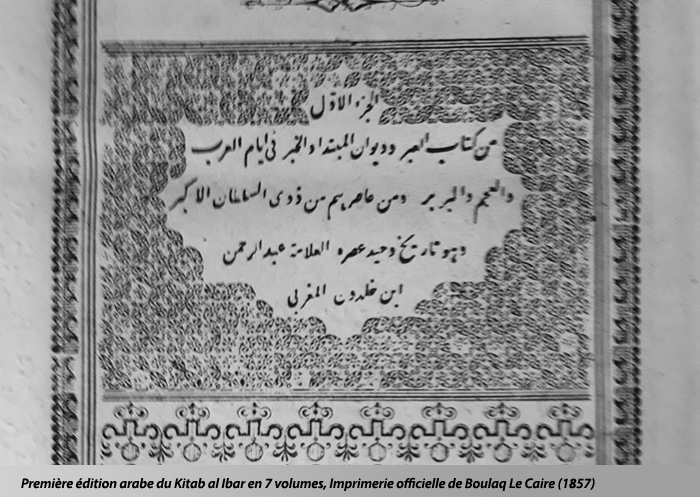 الجزء الاول
من كتاب العبر وديوان المبتدا والخبر فى ايام العرب
والعجم والبربر ومن عاصرهم من ذوى السلطان الاكبر
وهو تاريخ وحيد عصره العلامة عبد الرحمن
ابن خلدون المغربى
Première édition arabe du Kitab al Ibar en 7 volumes, Imprimerie officielle de Boulaq Le Caire (1857)